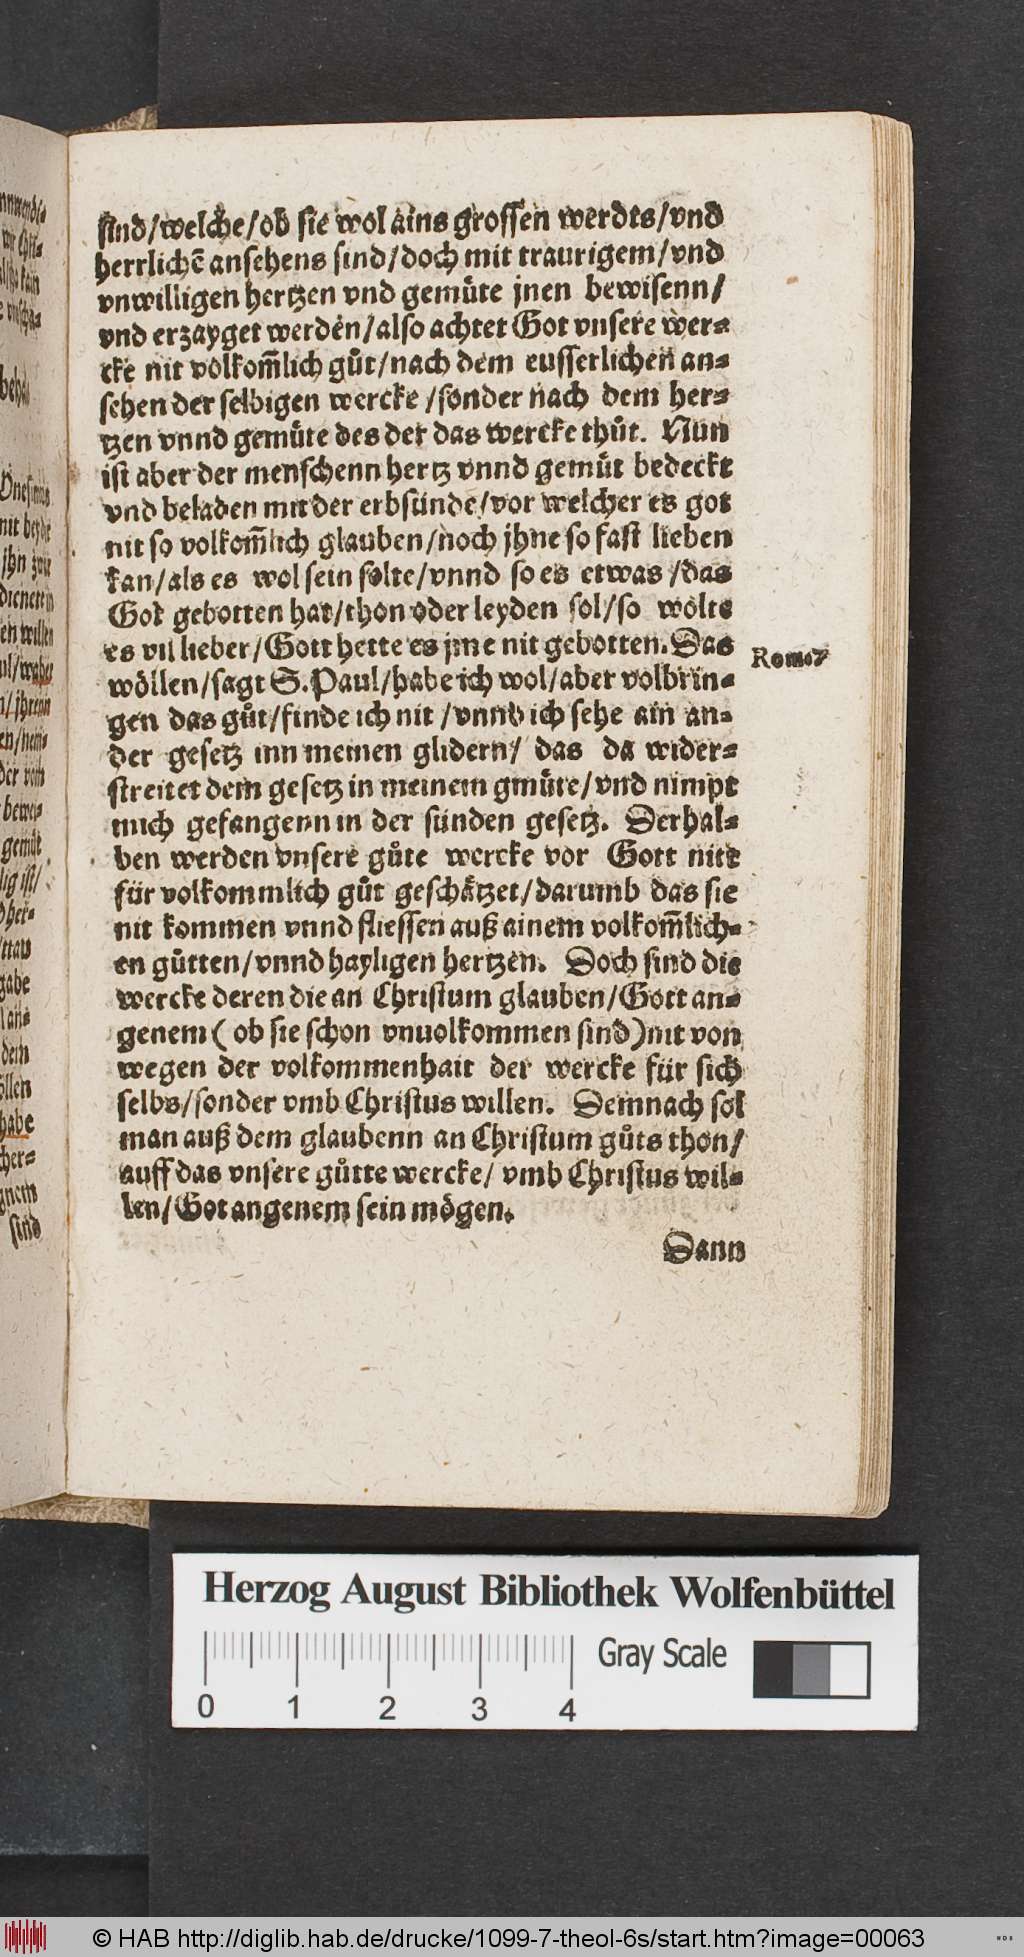 sind/welche/ob sie wol ains grossen werdts/vnd
herrlichẽ ansehens sind/doch mit traurigem/vnd
vnwilligen hertzen vnd gemuͤte jnen bewisenn/
vnd erzayget werden/also achtet Got vnsere wer⸗
cke nit volkom̃lich guͦt/nach dem eusserlichen an⸗
sehen der selbigen wercke/sonder nach dem her⸗
tzen vnnd gemuͤte des der das wercke thuͦt. Nun
ist aber der menschenn hertz vnnd gemuͤt bedeckt
vnd beladen mit der erbsünde/vor welcher es got
nit so volkom̃lich glauben/noch jhne so fast lieben
kan/als es wol sein solte/vnnd so es etwas/das
Got gebotten hat/thon oder leyden sol/so wolte
es vil lieber/Gott hette es jme nit gebotten. Das
woͤllen/sagt S. Paul/habe ich wol/aber volbrin⸗
gen das guͦt/finde ich nit/vnnd ich sehe ain an⸗
der gesetz inn meinen glidern/ das da wider⸗
streitet dem gesetz in meinem gmuͤte/vnd nimpt
mich gefangenn in der sünden gesetz. Derhal⸗
ben werden vnsere guͦte wercke vor Gott nitt
für volkommlich guͦt geschaͤtzet/darumb das sie
nit kommen vnnd fliessen auß ainem volkom̃lich⸗
en guͦtten/vnnd hayligen hertzen. Doch sind die
wercke deren die an Christum glauben/Gott an⸗
genem (ob sie schon vnuolkommen sind) nit von
wegen der volkommenhait der wercke für sich
selbs/sonder vmb Christus willen. Demnach sol
man auß dem glaubenn an Christum guͦts thon/
auff das vnsere guͦtte wercke/ vmb Christus wil⸗
len/Got angenem sein moͤgen.
Dann
Rom.7
Herzog August Bibliothek Wolfenbüttel
0 1 2 3 4
Gray Scale
© HAB http://diglib.hab.de/drucke/1099-7-theol-6s/start.htm?image=00063